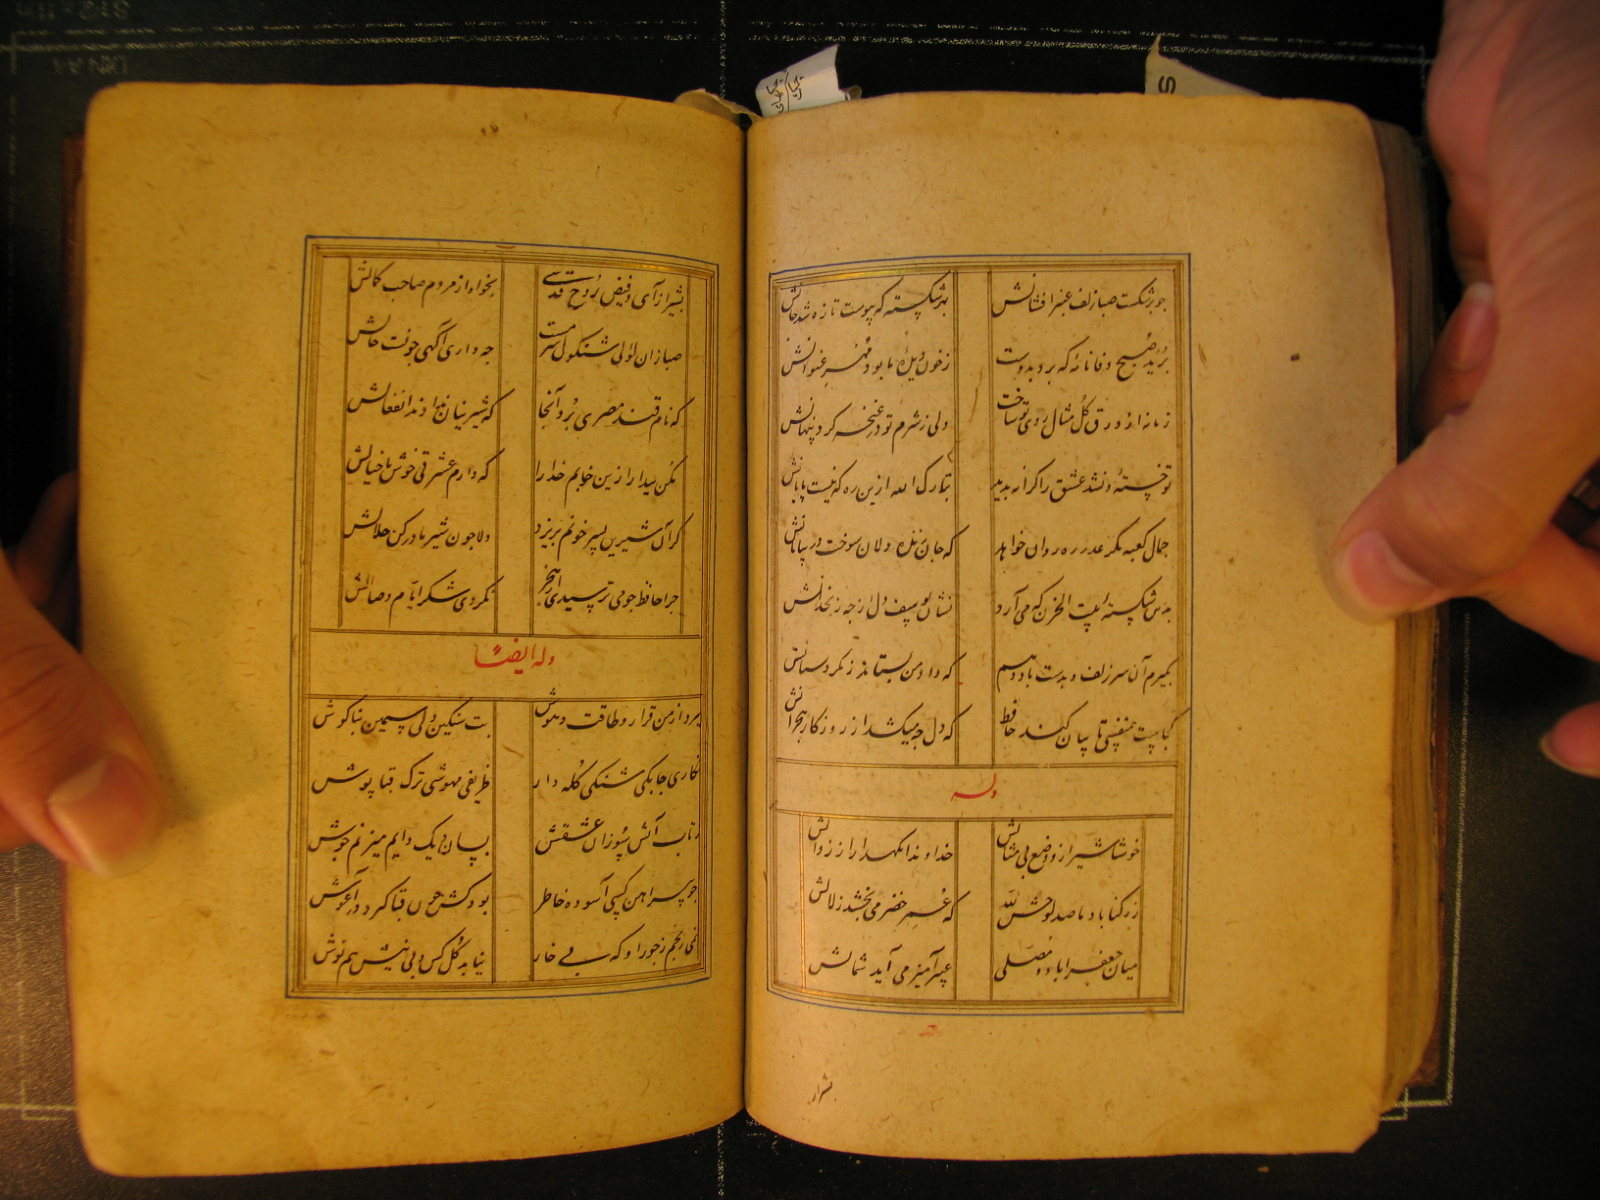 جو برشکست صبا زلف عنبر افشانش بهر شکسته که پیوست تازه شد جانش
برید صبح وفا نامهٔ که برد بدوست ز خون دیدهٔ ما بود مهر عنوانش
زمانه از ورق کل مثال روی تو ساخت ولی ز شرم تو در غنچه کرد پنهانش
تو خستهٔ و نشد عشق را کرانه پدید تبارک الله ازین ره که نیست پایانش
جمال کعبه مکر عذر ره روان خواهد که جان زنده دلان سوخت در بیابانش
بدین شکسته بیت الحزن که می آرد نشان یوسف دل از چه زنخدانش
بکیرم آن سر زلف و بدست دهم که داد من بستاند ز مکر و دستانش
کجاست همنفسی تا بیان کند حافظ که دل چه میکشد از روزکار هجرانش
وله
خوشا شیراز و وضع بی مثالش خداوندا نکهدار از زوالش
ز رکناباد ما صد لوحش الله که عمر خضر می بخشد زلالش
میان جعفرآباد و مصلی عبیرآمیز می آید شمالش
بشیراز
بشیراز آی و فیض روح قدسی بخواه از مردم صاحب کمالش
صبا زان لولی شنکول سرمست جه داری آکهی جونست حالش
که نام قند مصری برد آنجا که شیرینان ندادند انفعالش
مکن بیدار ازین خوابم خدا را که دارم عشرتی خوش با خیالش
کر آن شیرین پسر خونم بریزد دلا جون شیر مادر کن حلالش
جرا حافظ جو می ترسیدی از هجر نکردی شکر ایام وصالش
وله ایضاً
ببرد از من قرار و طاقت و هوش بت سنکین دلی سیمین بناکوش
نکاری جابکی شنکی کله دار ظریفی مهوشی ترکی قباپوش
ز تاب آتش سوزان عشقش بسان دیک دایم میزنم جوش
جو پیراهن کسی آسوده خاطر بود کش جون قبا کیرد در آغوش
نمی رنجم ز جور او که بی خار نیابد کل کس و بی نیش هم نوش